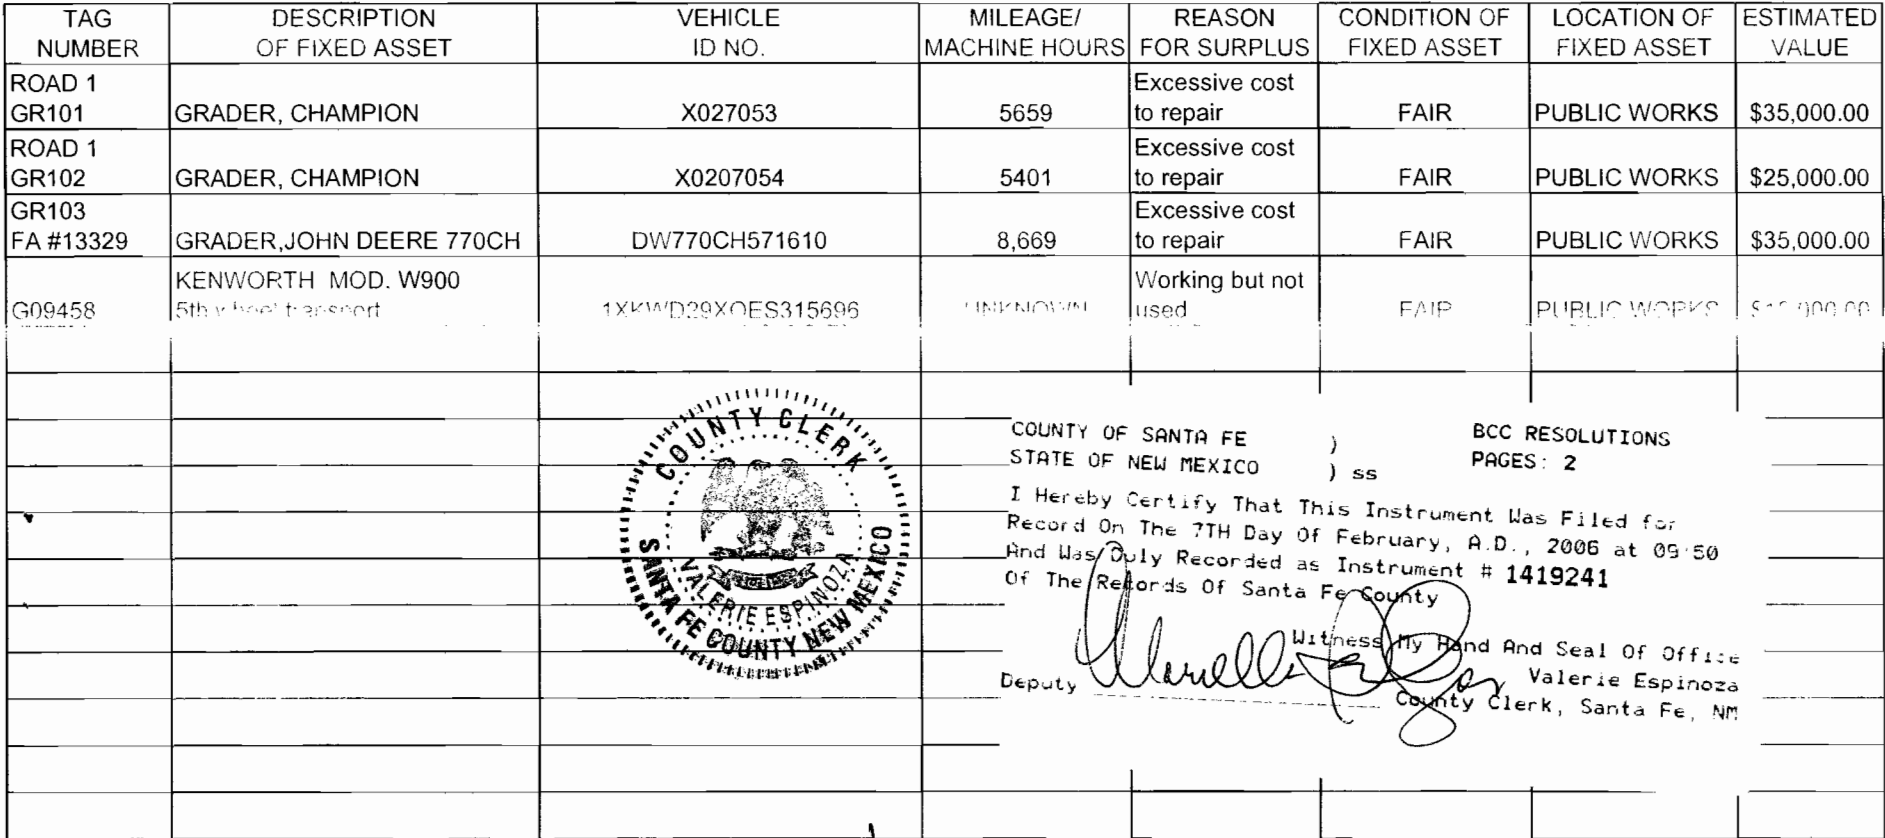 TAG NUMBER DESCRIPTION OF FIXED ASSET VEHICLE ID NO. MILEAGE/ MACHINE HOURS REASON FOR SURPLUS CONDITION OF FIXED ASSET LOCATION OF FIXED ASSET ESTIMATED VALUE
ROAD 1 GR101 GRADER, CHAMPION X027053 5659 Excessive cost to repair FAIR PUBLIC WORKS $35,000.00
ROAD 1 GR102 GRADER, CHAMPION X0207054 5401 Excessive cost to repair FAIR PUBLIC WORKS $25,000.00
GR103 FA #13329 GRADER,JOHN DEERE 770CH DW770CH571610 8,669 Excessive cost to repair FAIR PUBLIC WORKS $35,000.00
G09458 KENWORTH MOD. W900 5th wheel transport 1XKWD29XOES315696 UNKNOWN Working but not used FAIR PUBLIC WORKS
COUNTY CLERK
VALERIE ESPINOZA
SANTA FE COUNTY NEW MEXICO
COUNTY OF SANTA FE ) BCC RESOLUTIONS
STATE OF NEW MEXICO ) ss PAGES: 2
I Hereby Certify That This Instrument Was Filed for
Record On The 7TH Day Of February, A.D., 2006 at 09:50
And Was Duly Recorded as Instrument # 1419241
Of The Records Of Santa Fe County
Witness My Hand And Seal Of Office
Valerie Espinoza
Deputy County Clerk, Santa Fe, NM